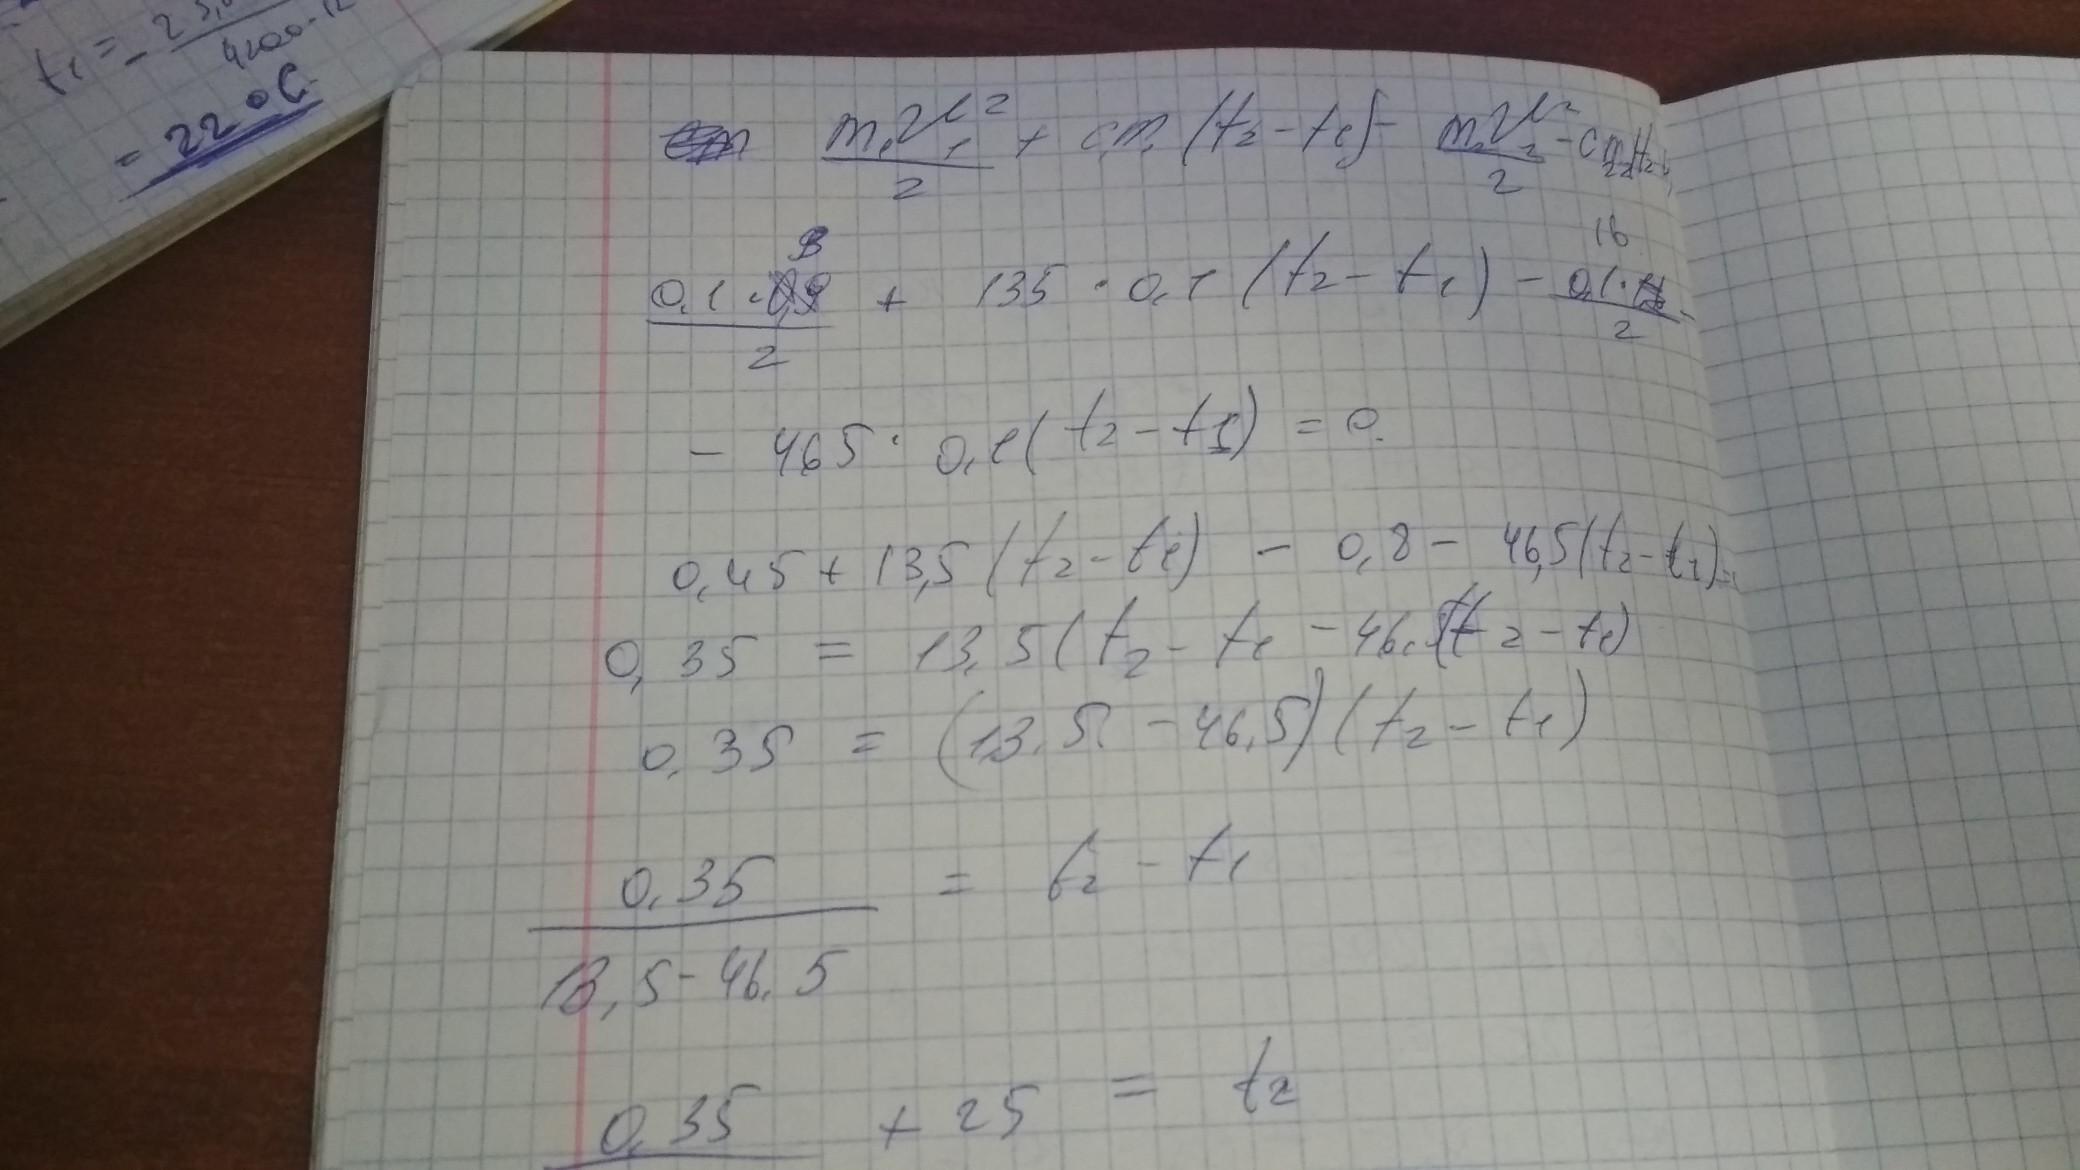 t₁ = - 25,
4200·12
= 22 °C
m₁v₁²/2 + c₁m₁(t₂ - t₁) - m₂v₂²/2 - c₂m₂(t₂-t₁
0,1·9/2 + 135·0,1(t₂ - t₁) - 0,1·16/2 -
- 465·0,1(t₂ - t₁) = 0.
0,45 + 13,5(t₂ - t₁) - 0,8 - 46,5(t₂ - t₁) =
0,35 = 13,5(t₂ - t₁ - 46,5(t₂ - t₁)
0,35 = (13,5 - 46,5)(t₂ - t₁)
0,35/13,5 - 46,5 = t₂ - t₁
0,35 + 25 = t₂